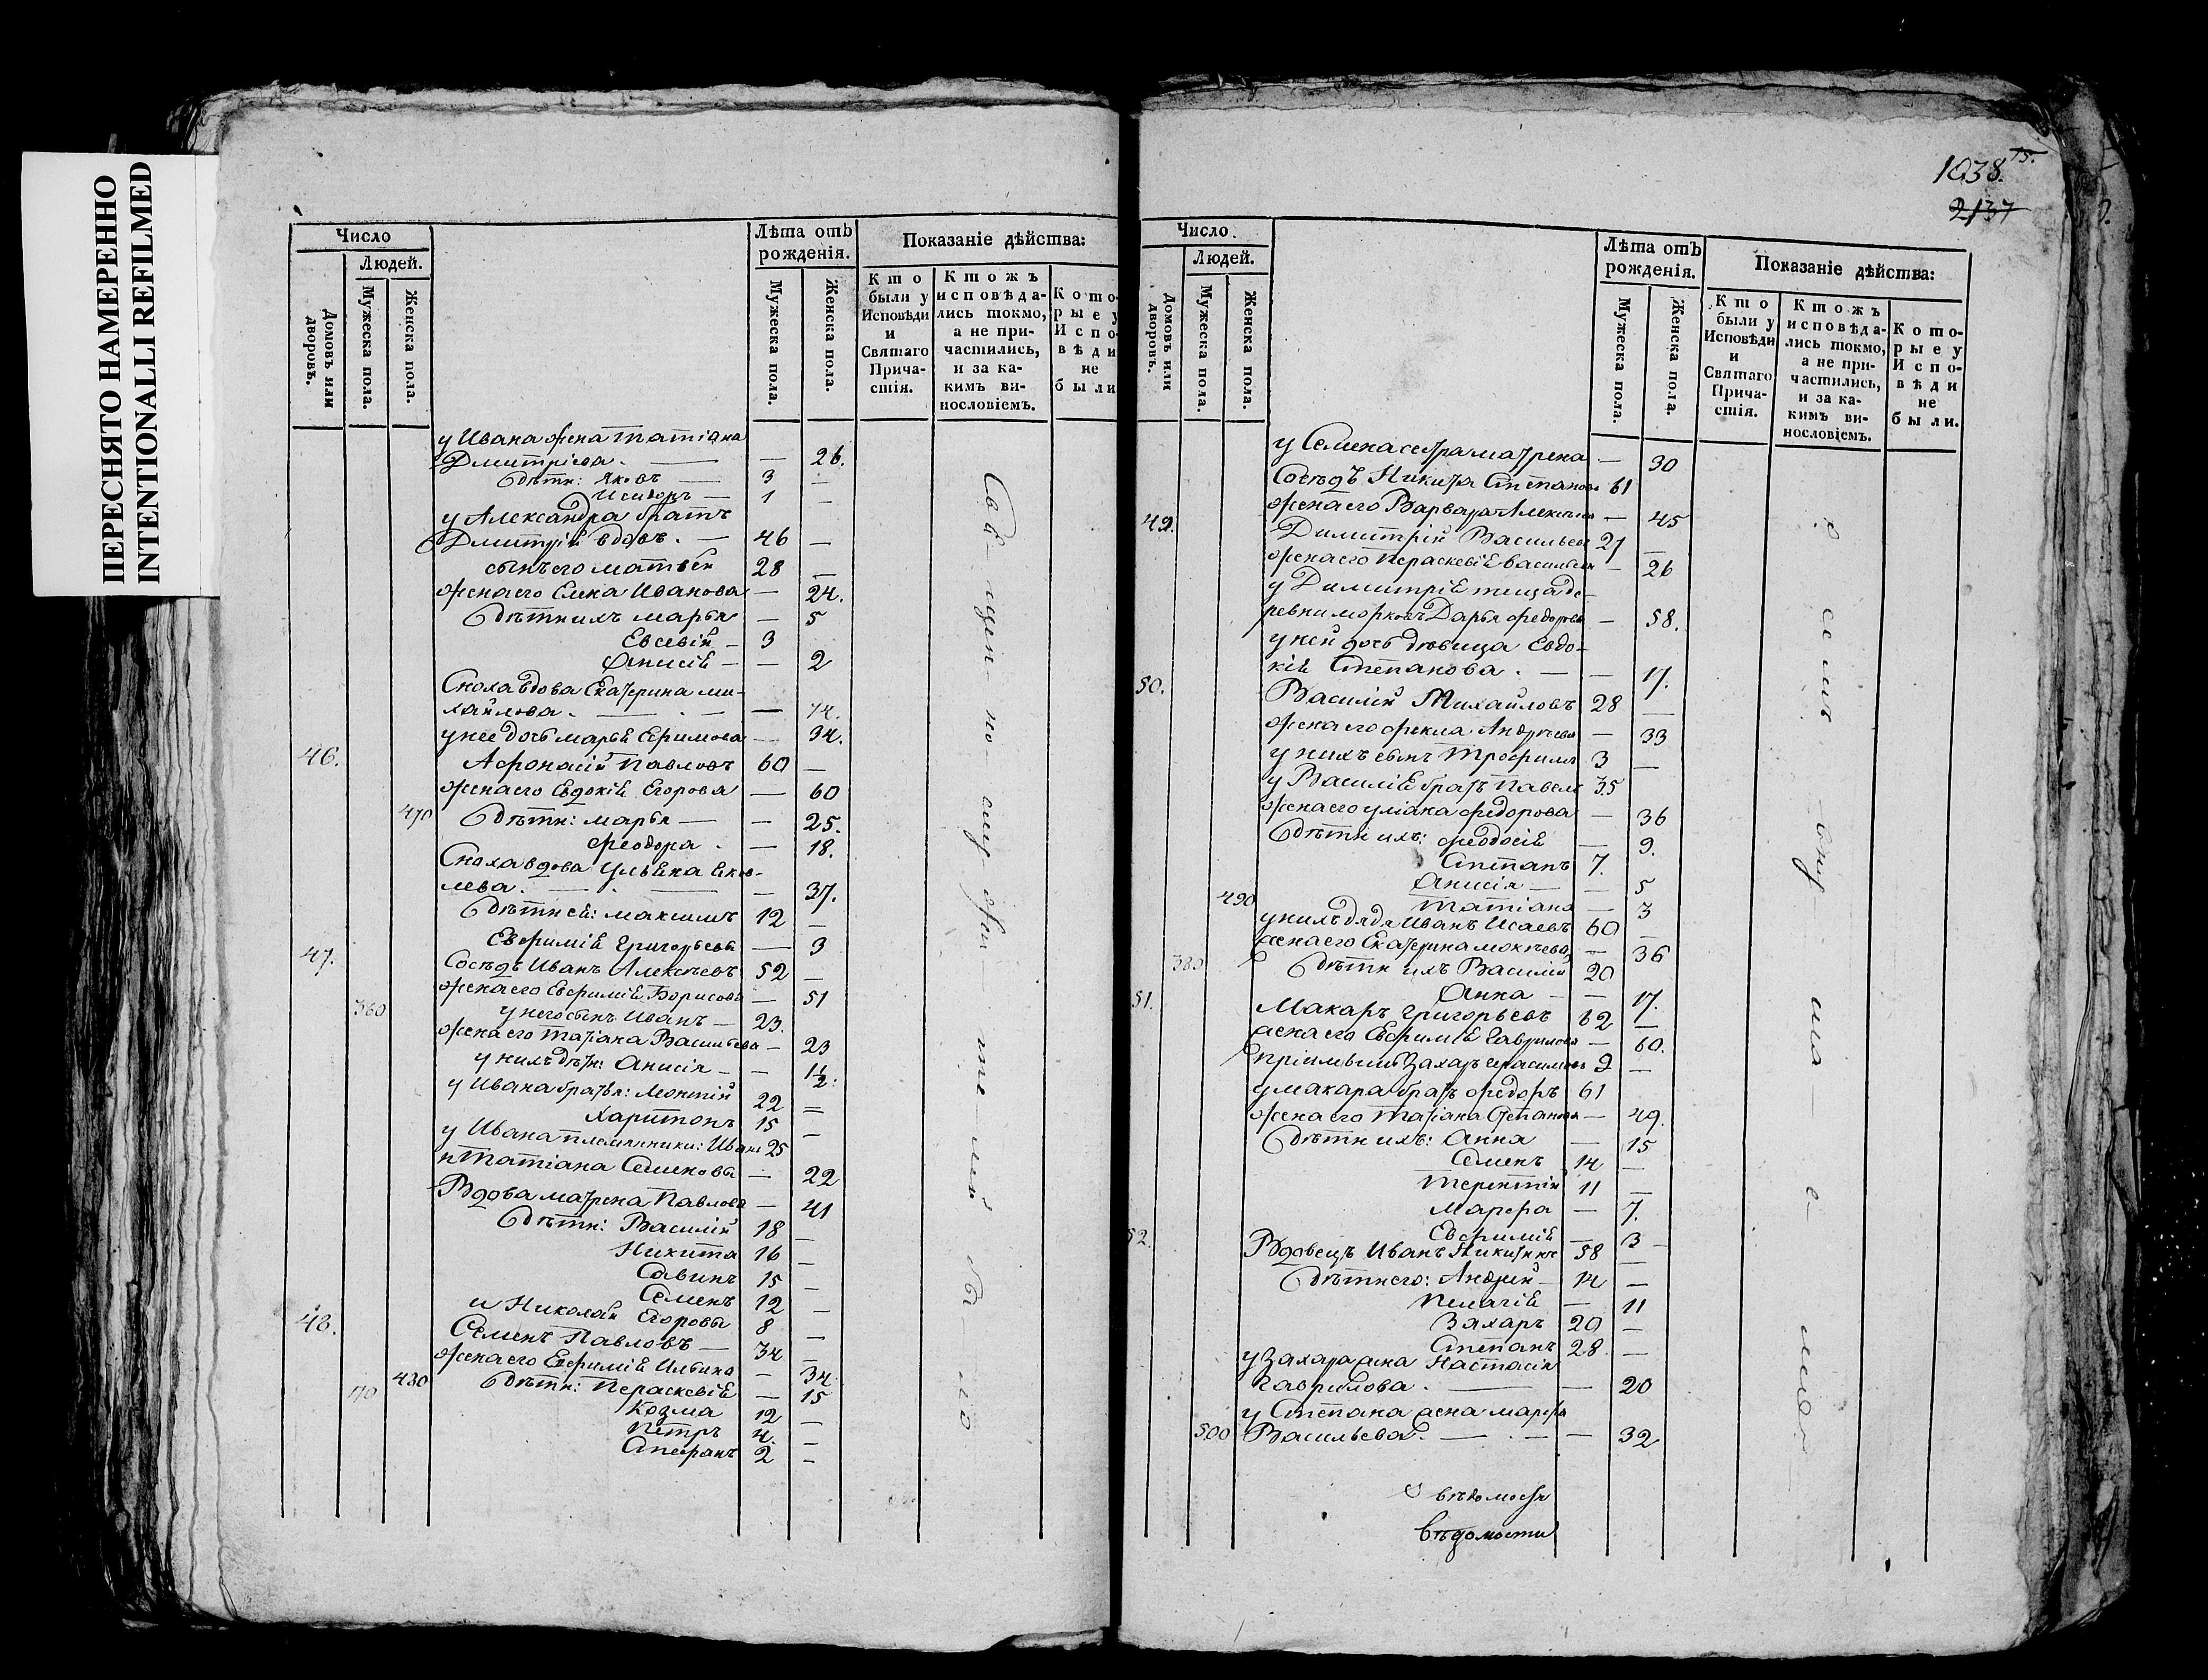 ПЕРЕСНЯТО НАМЕРЕННО
INTENTIONALLI REFILMED
Число
Людей.
Домовъ или дворовъ.
Мужеска пола.
Женска пола.
Лѣта отъ рожденія.
Мужеска пола.
Женска пола.
Показаніе дѣйства:
Кто были у Исповѣди и Святаго Причастія.
Ктожъ исповѣдались токмо, а не причастились, и за какимъ винословіемъ.
Которые у Исповѣди не были
у Ивана жена Татіана
Дмитріева. — — 26.
Дѣти: Яковъ — 3 —
Исидоръ — 1 —
у Александра братъ
Дмитрій вдовъ. — 46 —
сынъ его Матвей 28 —
жена его Елена Иванова — 24.
Дѣти ихъ Марья — 5
Евсевій — 3
Анисіѣ — — 2
Сноха вдова Екатерина Ми-
хайлова. — — 74.
у нее дочь Марьѣ Ефимова — 34.
46. Афонасій Павловъ 60 —
жена его Евдокіѣ Егорова — 60
470 Дѣти: Марья — — 25.
Феодора. — 18.
Сноха вдова Ульѣна Яков-
лева. — — 37.
Дѣти ей: Максимъ 12 —
Евфиміѣ Григорьевы — 3
47. Сосѣдъ Иванъ Алексѣевъ 52 —
жена его Евфиміѣ Борисова — 51
360 у него сынъ Иванъ — 23. —
жена его Татіана Васильева — 23
у нихъ дѣти: Анисія — — 1½.
у Ивана братья: Леонтій 22 —
Харитонъ 15 —
у Ивана племянники: Иванъ 25
и Татіана Семеновы — 22
Вдова Матрена Павлова — 41
Дѣти: Василій 18 —
Никита 16 —
Савинъ 15 —
Семенъ 12 —
и Николай Егоровы 8 —
48. Семенъ Павловъ — 34 —
жена его Евфиміѣ Ильина — 34
70 480 Дѣти: Параскевіѣ — 15
Козма 12 —
Петръ 4. —
Стефанъ 2 —
1038. 75.
2137
Число.
Людей.
Домовъ или дворовъ.
Мужеска пола.
Женска пола.
Лѣта отъ рожденія.
Мужеска пола.
Женска пола.
Показаніе дѣйства:
Кто были у Исповѣди и Святаго Причастія.
Ктожъ исповѣдались токмо, а не причастились, и за какимъ винословіемъ.
Которые у Исповѣди не были.
у Семена сестра Матрена — 30
Сосѣдъ Никита Степановъ 61
жена его Варвара Алексѣева — 45
49. Димитрій Васильевъ 21 —
жена его Параскевіѣ Васильева — 26
у Димитріѣ теща де-
ревни Дарья Федорова — 58.
у ней дочь дѣвица Евдо-
кіѣ Степанова. — — 17.
50. Василій Михайловъ 28 —
жена его Фекла Андрѣева — 33
у нихъ сынъ Трофимъ 3 —
у Василіѣ братъ Павелъ 35
жена его Уліана Федорова — 36
Дѣти ихъ: Феодосіѣ — 9.
Степанъ 7.
Анисія — — 5
490 Татіана — 3
у нихъ дядя Иванъ Исаевъ 60 —
жена его Екатерина — 36
380 Дѣти ихъ Василій 20
Анна — — 17.
51. Макаръ Григорьевъ 62 —
жена его Евфиміѣ Гаврилова — 60.
Захаръ Герасимовъ 9 —
у Макара братъ Федоръ 61
жена его Татіана Степанова — 49.
Дѣти ихъ: Анна — 15
Семенъ 14 —
Терентій 11 —
Марфа — 7.
Евфиміѣ — 3
52. Вдовецъ Иванъ Никитинъ 58 —
Дѣти его: Андрей — 14 —
Пелагіѣ — 11
Захаръ 20 —
Степанъ 28. —
у Захара жена Настасія
Гаврилова. — — 20
у Степана жена Марфа
500 Васильева. — — 32
вѣдомость
вѣдомости